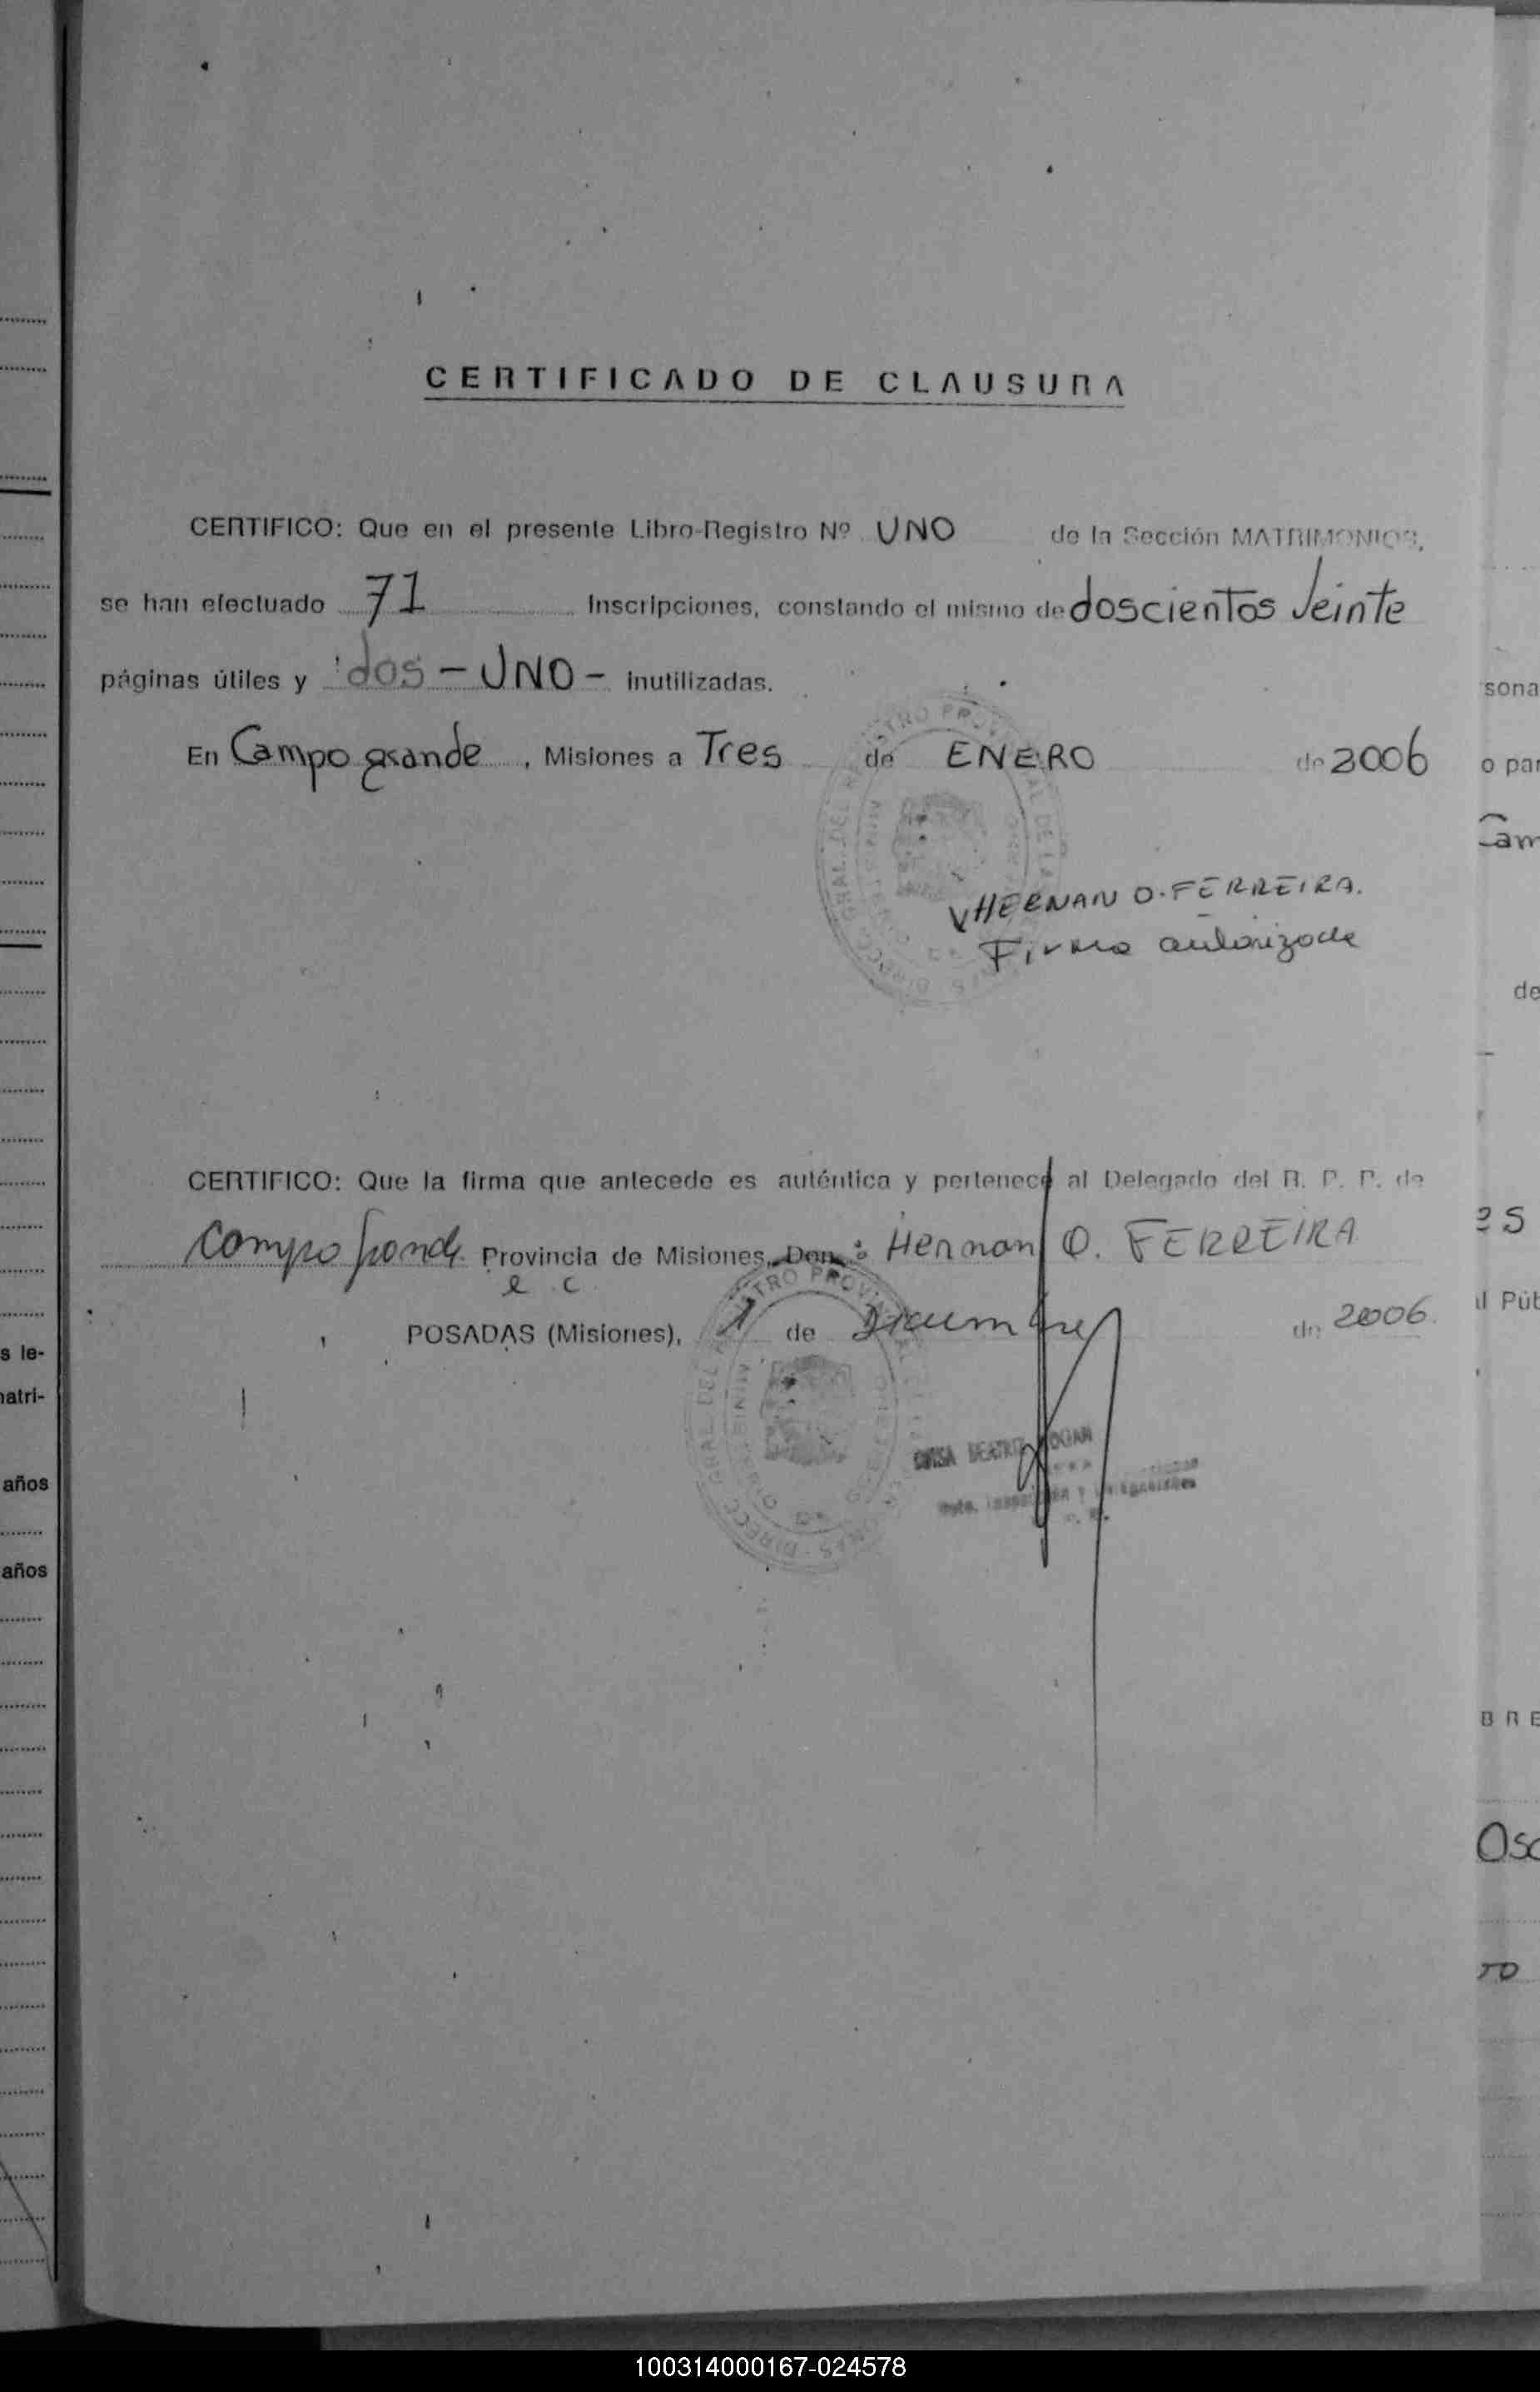 CERTIFICADO DE CLAUSURA
CERTIFICO: Que en el presente Libro-Registro Nº UNO de la Sección MATRIMONIOS,
se han efectuado 71 Inscripciones, constando el mismo de doscientos Veinte
páginas útiles y dos - UNO - inutilizadas.
En Campo grande, Misiones a Tres de ENERO de 2006
HERNAN O. FERREIRA.
Firma autorizada
CERTIFICO: Que la firma que antecede es auténtica y pertenece al Delegado del R. P. P. de
Campo Grande Provincia de Misiones, Don: Hernan O. FERREIRA
POSADAS (Misiones), 1 de Diciembre de 2006.
s le-
matri-
años
años
sona
o par
Cam
de
es
al Púb
BRE
Osc
100314000167-024578